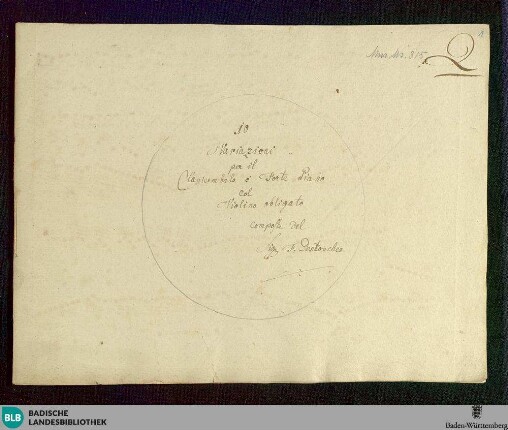 1
Mus. Hs. 815
10
Variazioni
per il
Clavicembalo ô Forte Piano
col
Violino obligato
composte del
Sigr
BLB
BADISCHE
LANDESBIBLIOTHEK
Baden-Württemberg